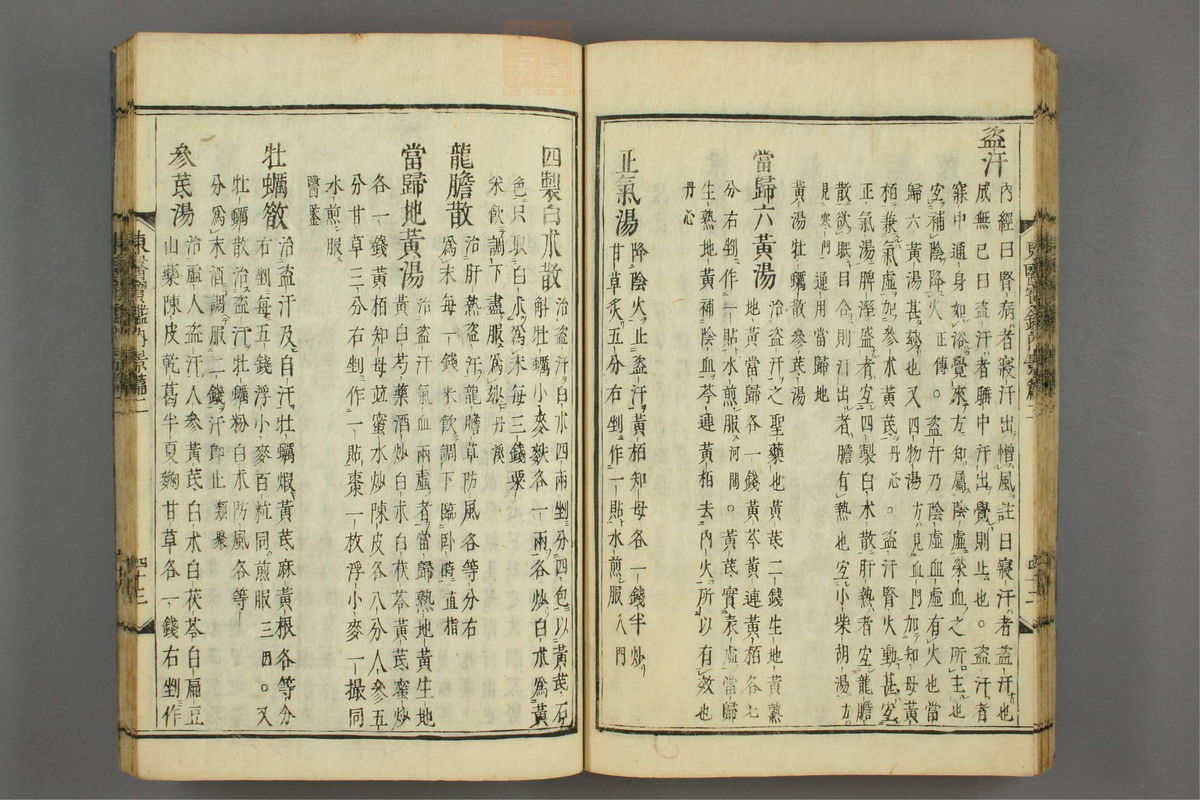 盜汗
內經曰腎病者寢汗出憎風註曰寢汗者盜汗也
成無已曰盜汗者睡中汗出覺則止也。盜汗者
寐中通身如浴覺來方知屬陰虛榮血之所主也
宜補陰降火正傳。盜汗乃陰虛血虛有火也當
歸六黃湯甚妙也又四物湯方見血門加知母黃
栢兼氣虛加參朮黃芪丹心。盜汗腎火動甚宜
正氣湯脾溼盛者宜四製白朮散肝熱者宜龍膽
散欲眠目合則汗出者膽有熱也宜小柴胡湯方
見寒門通用當歸地
黃湯牡蠣散參芪湯
當歸六黃湯 治盜汗之聖藥也黃芪二錢生地黃熟
地黃當歸各一錢黃芩黃連黃栢各七
分右剉作一貼水煎服河間。黃芪實表虛當歸
生熟地黃補陰血芩連黃栢去內火所以有效也
丹心
正氣湯 降陰火止盜汗黃栢知母各一錢半炒
甘草炙五分右剉作一貼水煎服入門
四製白朮散 治盜汗白朮四兩剉分四包以黃芪石
斛牡蠣小麥麩各一兩各炒白朮爲黃
色只取白朮爲末每三錢粟
米飮調下盡服爲妙丹溪
龍膽散 治肝熱盜汗龍膽草防風各等分右
爲末每一錢米飮調下臨臥時直指
當歸地黃湯 治盜汗氣血兩虛者當歸熟地黃生地
黃白芍藥酒炒白朮白茯苓黃芪蜜炒
各一錢黃栢知母並蜜水炒陳皮各八分人參五
分甘草三分右剉作一貼棗一枚浮小麥一撮同
水煎服
醫鑒
牡蠣散 治盜汗及自汗牡蠣煆黃芪麻黃根各等分
右剉每五錢浮小麥百粒同煎服三因。又
牡蠣散治盜汗牡蠣粉白朮防風各等
分爲末酒調服二錢汗卽止類聚
參芪湯 治虛人盜汗人參黃芪白朮白茯苓白扁豆
山藥陳皮乾葛半夏麴甘草各一錢右剉作
東醫寶鑑內景篇二
四十二
東醫寶鑑內景篇二
四十三